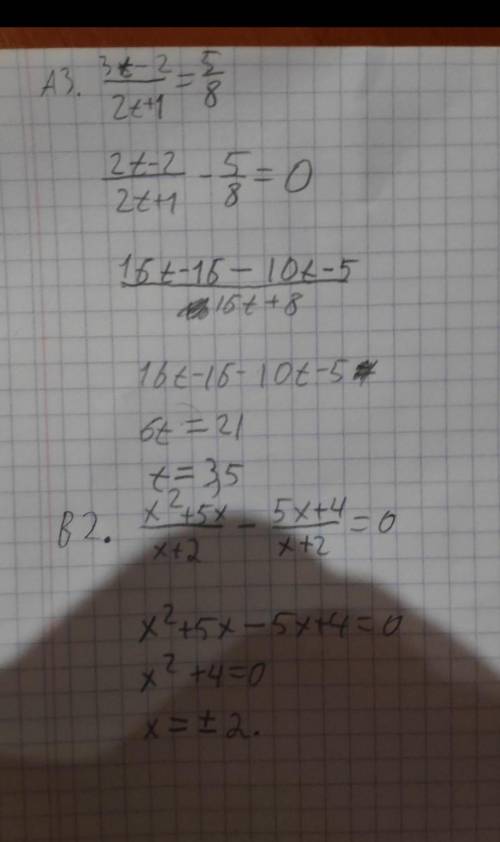 A3. (3t-2)/(2t+1) = 5/8
(2t-2)/(2t+1) - 5/8 = 0
(16t-16-10t-5)/(16t+8)
16t-16-10t-5
6t = 21
t = 3,5
B2. (x²+5x)/(x+2) - (5x+4)/(x+2) = 0
x²+5x-5x+4=0
x²+4=0
x=±2.